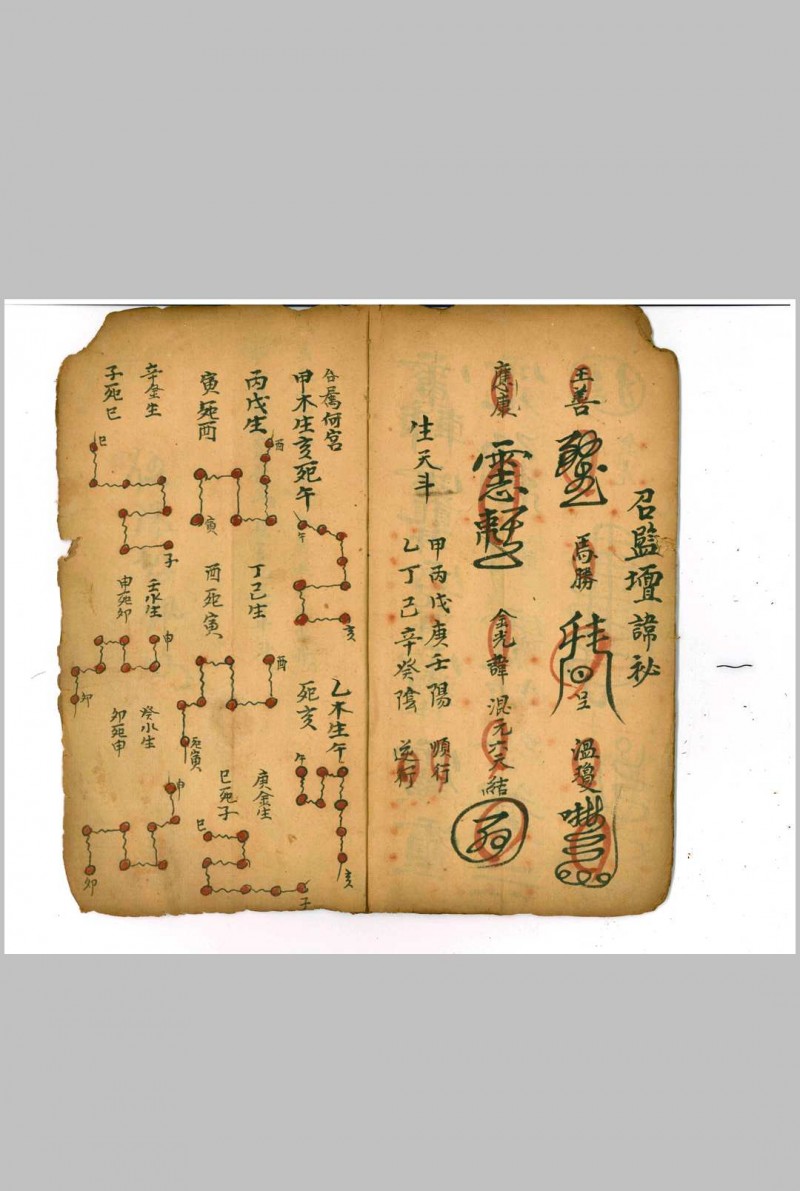 召監壇諱祕
王善 馬勝 溫瓊
應康 金光諱 混元六天結
甲丙戊庚壬陽 順行
乙丁己辛癸陰 逆行
生天斗
各属何宮
甲木生亥死午
午
亥
乙木生午
死亥
午
亥
丙戊生
寅死酉
酉
寅
丁己生
酉死寅
酉
死寅
庚金生
巳死子
巳
子
辛金生
子死巳
巳
子
壬水生
申死卯
申
卯
癸水生
卯死申
申
卯